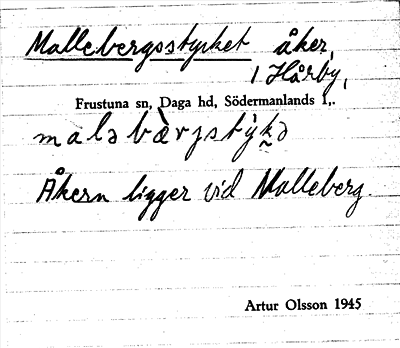 Mallebergsstycket åker,
i Hårby,
Frustuna sn, Daga hd, Södermanlands l,.
maləbæ̀rjstýkə
Åkern ligger vid Malleberg.
Artur Olsson 1945